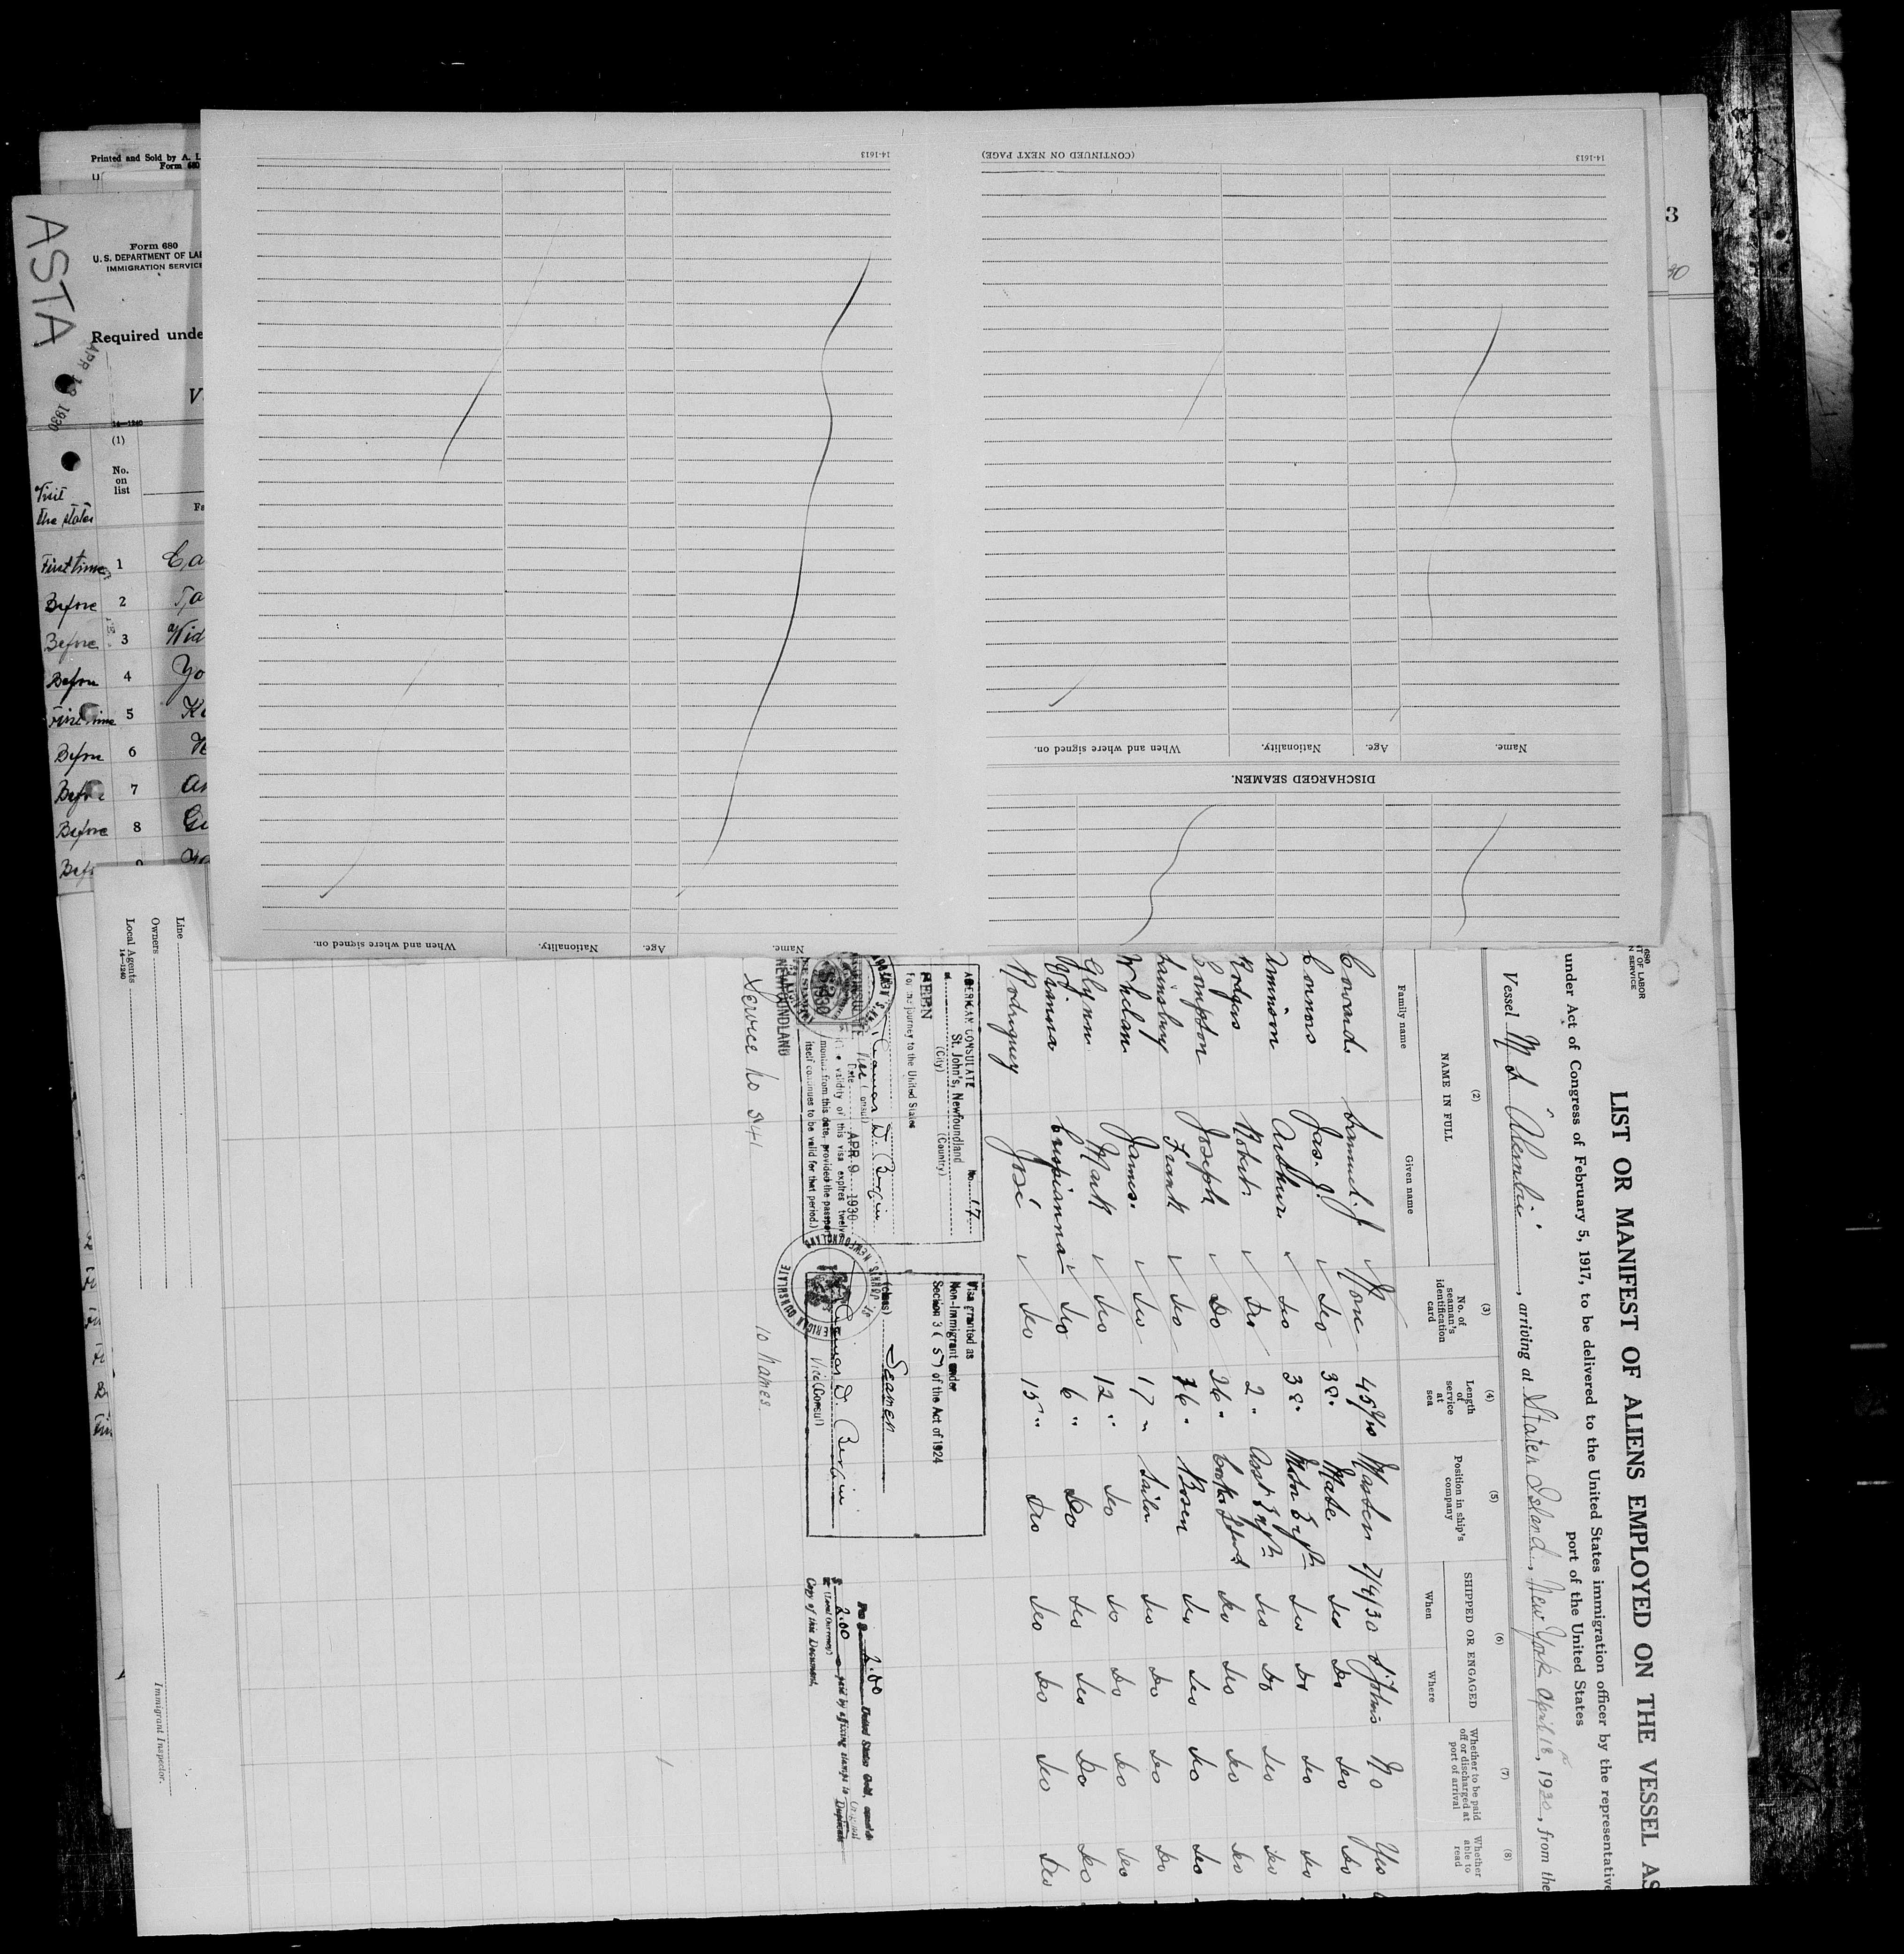 Printed and Sold by A. L
Form 680
ASTA
Form 680
U. S. DEPARTMENT OF LAB
IMMIGRATION SERVICE
Required unde
APR 1930
V
14—1240
(1)
No.
on
list
Fa
Visit
the states
First time 1 Ca
Before 2
Before 3 Wid
Before 4 Yo
First time 5
Before 6
Before 7 An
Before 8
9
3
30
14-1613
When and where signed on.
Nationality.
Age.
Name.
(CONTINUED ON NEXT PAGE)
14-1613
DISCHARGED SEAMEN.
When and where signed on.
Nationality.
Age.
Name.
Line
Owners
Local Agents
14—1240
Immigrant Inspector.
680
T OF LABOR
N SERVICE
LIST OR MANIFEST OF ALIENS EMPLOYED ON THE VESSEL AS
under Act of Congress of February 5, 1917, to be delivered to the United States immigration officer by the representative
port of the United States
Vessel M S "Alembic", arriving at Staten Island, New York April 18, 1930, from the
(2)
NAME IN FULL
Family name
Given name
(3)
No. of
seaman's
identification
card
(4)
Length
of
service
at
sea
(5)
Position in ship's
company
(6)
SHIPPED OR ENGAGED
When
Where
(7)
Whether to be paid
off or discharged at
port of arrival
(8)
Whether
able to
read
Cowards Samuel J None 45 yrs Master 7/4/30 St Johns No Yes
Connors Jas. J. do 38 " Mate do do do do
Arthur do 38 " do do do do
Rodgers Robert do 2 " do do do do
Compton Joseph Do 26 " do do do do
Frank do Bosen do do do do
Whelan James do 17 " Sailor do do do do
Glynn Mark do 12 " do do do do do
do 6 " Do do do Do do
Rodriguey José do 15 " Do do do do do
AMERICAN CONSULATE
at St. John's, Newfoundland No. 17
(City) (Country)
SEEN
For the journey to the United States
Vice Consul
Date APR 9 1930
validity of this visa expires twelve
months from this date, provided the passport
itself continues to be valid for that period.)
$2
NEWFOUNDLAND
Visa granted as
Non-Immigrant under
Section 3 (5) of the Act of 1924
(class) Seamen
Vice Consul
AMERICAN CONSULATE
ST. JOHN'S, NEWFOUNDLAND
Fee $ 2.00 United States Gold,
$ 2.00 paid by affixing stamps to Original
(Local Currency) Duplicate
Copy of this Document.
Service No 541
10 names